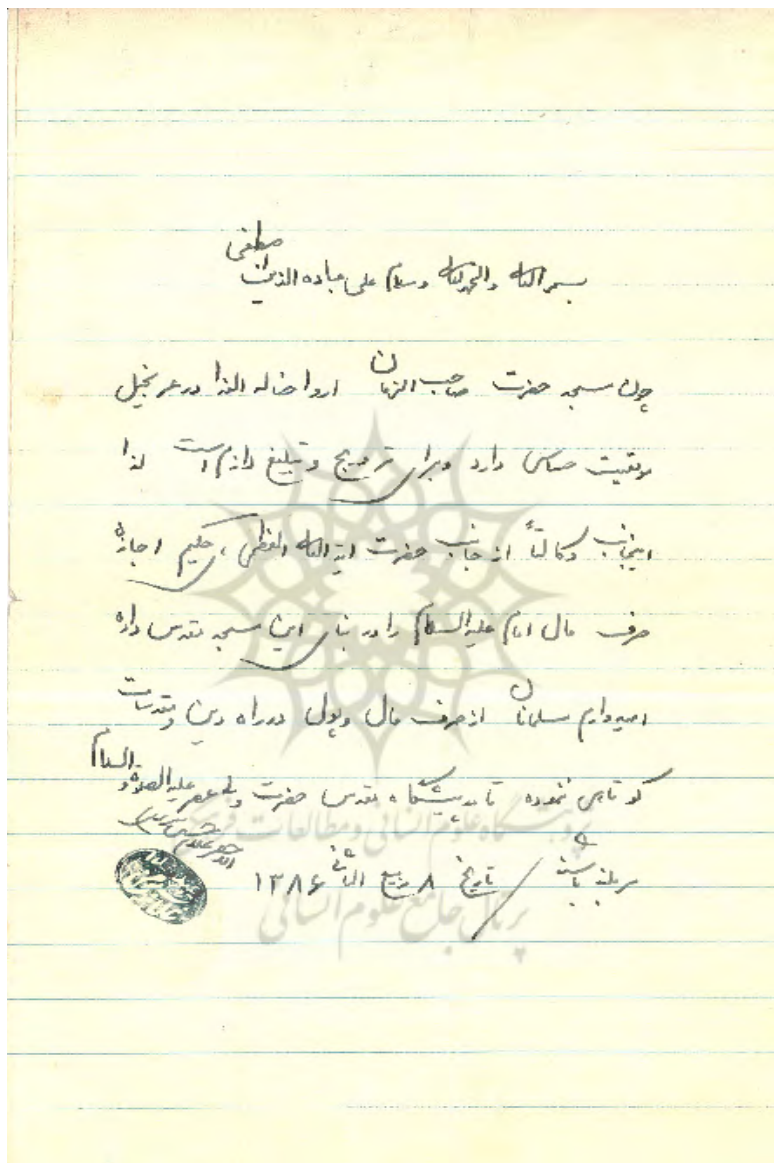 بسم الله والحمد لله وسلام علی عباده الذین اصطفی
چون مسجد حضرت صاحب الزمان ارواحنا له الفدا در
موقعیت حساسی دارد و برای ترویج و تبلیغ لازم است لذا
اینجانب وکالتاً از جانب حضرت آیة الله العظمی حکیم اجازه
صرف مال امام علیه السلام را در بنای این مسجد مقدس داده
امیدوارم مسلمانان از صرف مال و پول در راه دین و مقدسات
کوتاهی ننموده تا در پیشگاه مقدس حضرت ولی عصر علیه الصلوة و السلام
سربلند باشند تاریخ ۸ ربیع الثانی ۱۳۸۶
پژوهشگاه علوم انسانی و مطالعات فرهنگی
پرتال جامع علوم انسانی